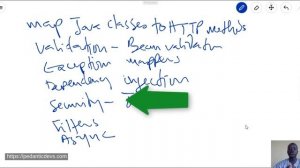 map Java classes to HTTP methods
Validation - Bean validation
Exception mappers
Dependency injection
Security -
Filters
Async
https://pedanticdevs.com